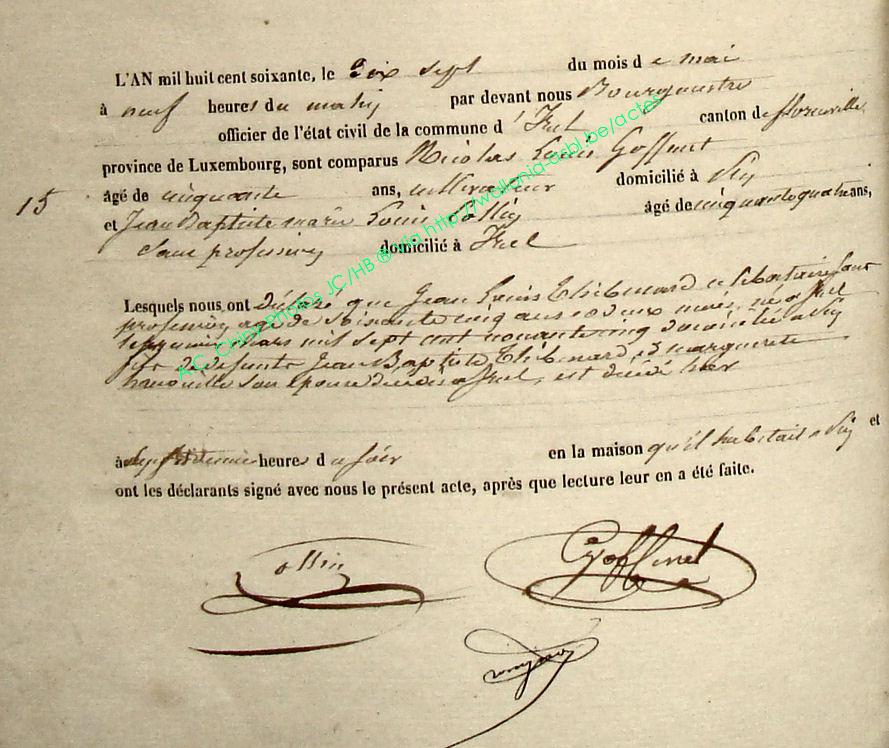 L'AN mil huit cent soixante, le Dix sept du mois d e mai
à neuf heures du matin par devant nous Bourgmestre
officier de l'état civil de la commune d' Izel canton de florenville
province de Luxembourg, sont comparus Nicolas Louis Goffinet
15 âgé de cinquante ans, cultivateur domicilié à
et Jean Baptiste marie Louis ollin âgé de cinquante quatre ans,
Sans profession domicilié à Izel
Lesquels nous ont Déclaré que Jean Louis Thibmard celibataire sans
profession agé de Soixante cinq ans deux mois, né a Izel
le premier mars mil sept cent nonante cinq domicilié a
fils de defunts Jean Baptiste Thibmard et marguerite
son épouse décédés a Izel, est décédé hier
à Sept et demie heures d u soir en la maison qu'il habitait a et
ont les déclarants signé avec nous le présent acte, après que lecture leur en a été faite.
ollin Goffinet
A.C. Chiny Photos JC/HB ® via http://wallonia-asbl.be/actes